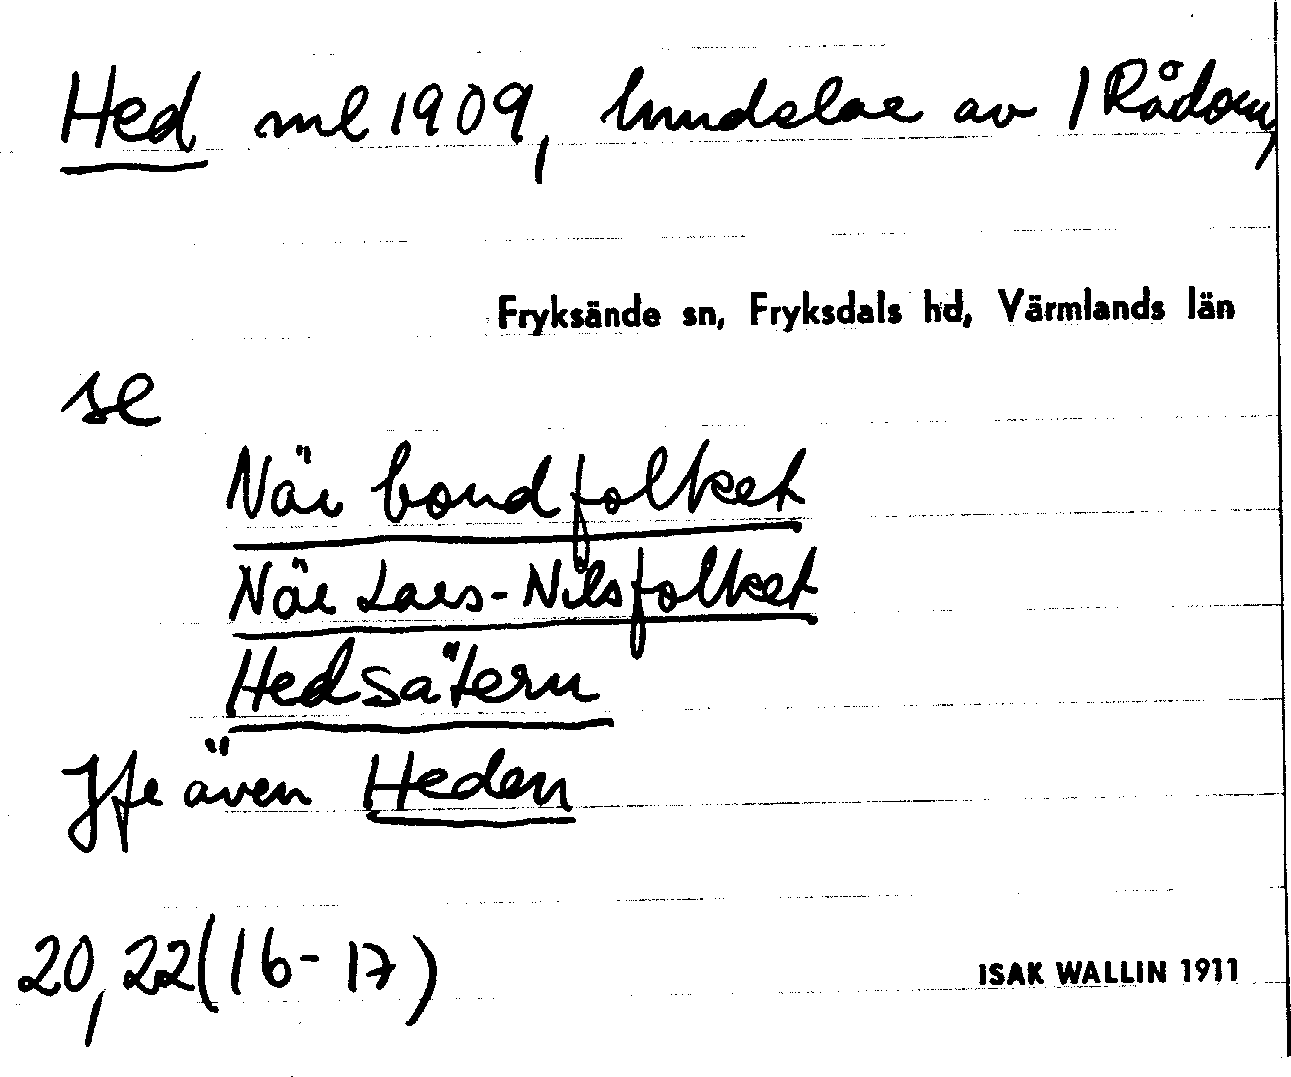 Hed ml 1909, hundelar av 1 Rådom,
Fryksände sn, Fryksdals hd, Värmlands län
se
När bondfolket
När Lars-Nilsfolket
Hedsätern
Jfr även Heden
20, 22 (16-17)
ISAK WALLIN 1911